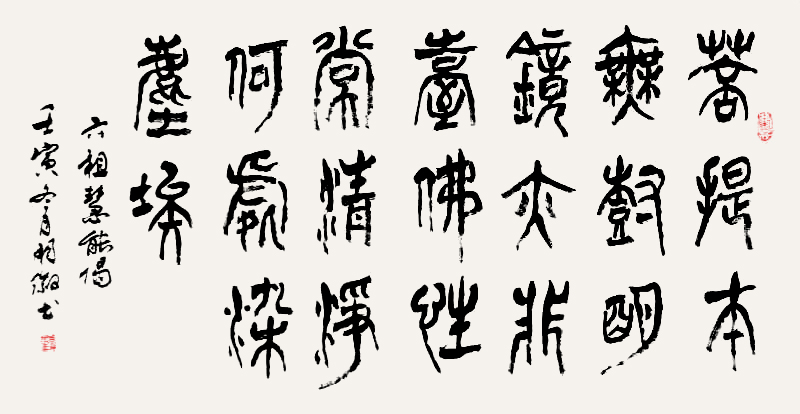 菩提本
無樹明
鏡亦非
臺佛性
常清淨
何處染
塵埃
六祖慧能偈
壬寅冬月书